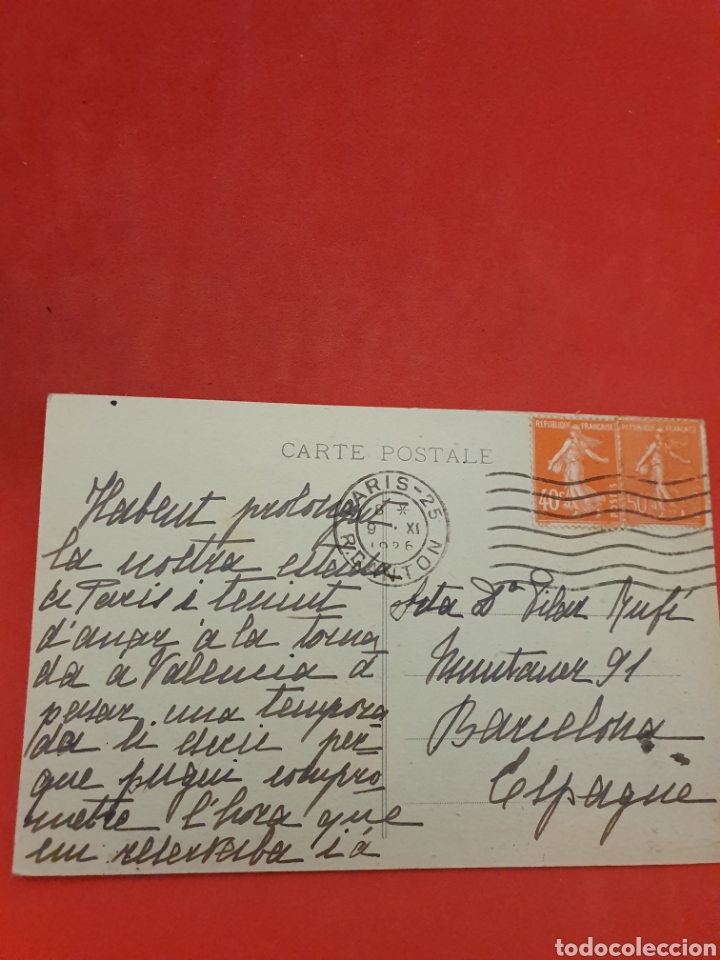 CARTE POSTALE
REPUBLIQUE FRANÇAISE
40c
REPUBLIQUE FRANÇAISE
PARIS-25
R. DANTON
9 XI
1926
Habent prolongat
la nostra estada
a Paris i tenint
d'anar á la torna
da a Valencia á
pasar una tempora
da li escric per
que pugui compro
metre l'hora que
em reservaba i á
Srta Dª Pilar Rufí
Muntaner 91
Barcelona
Espagne
todocoleccion